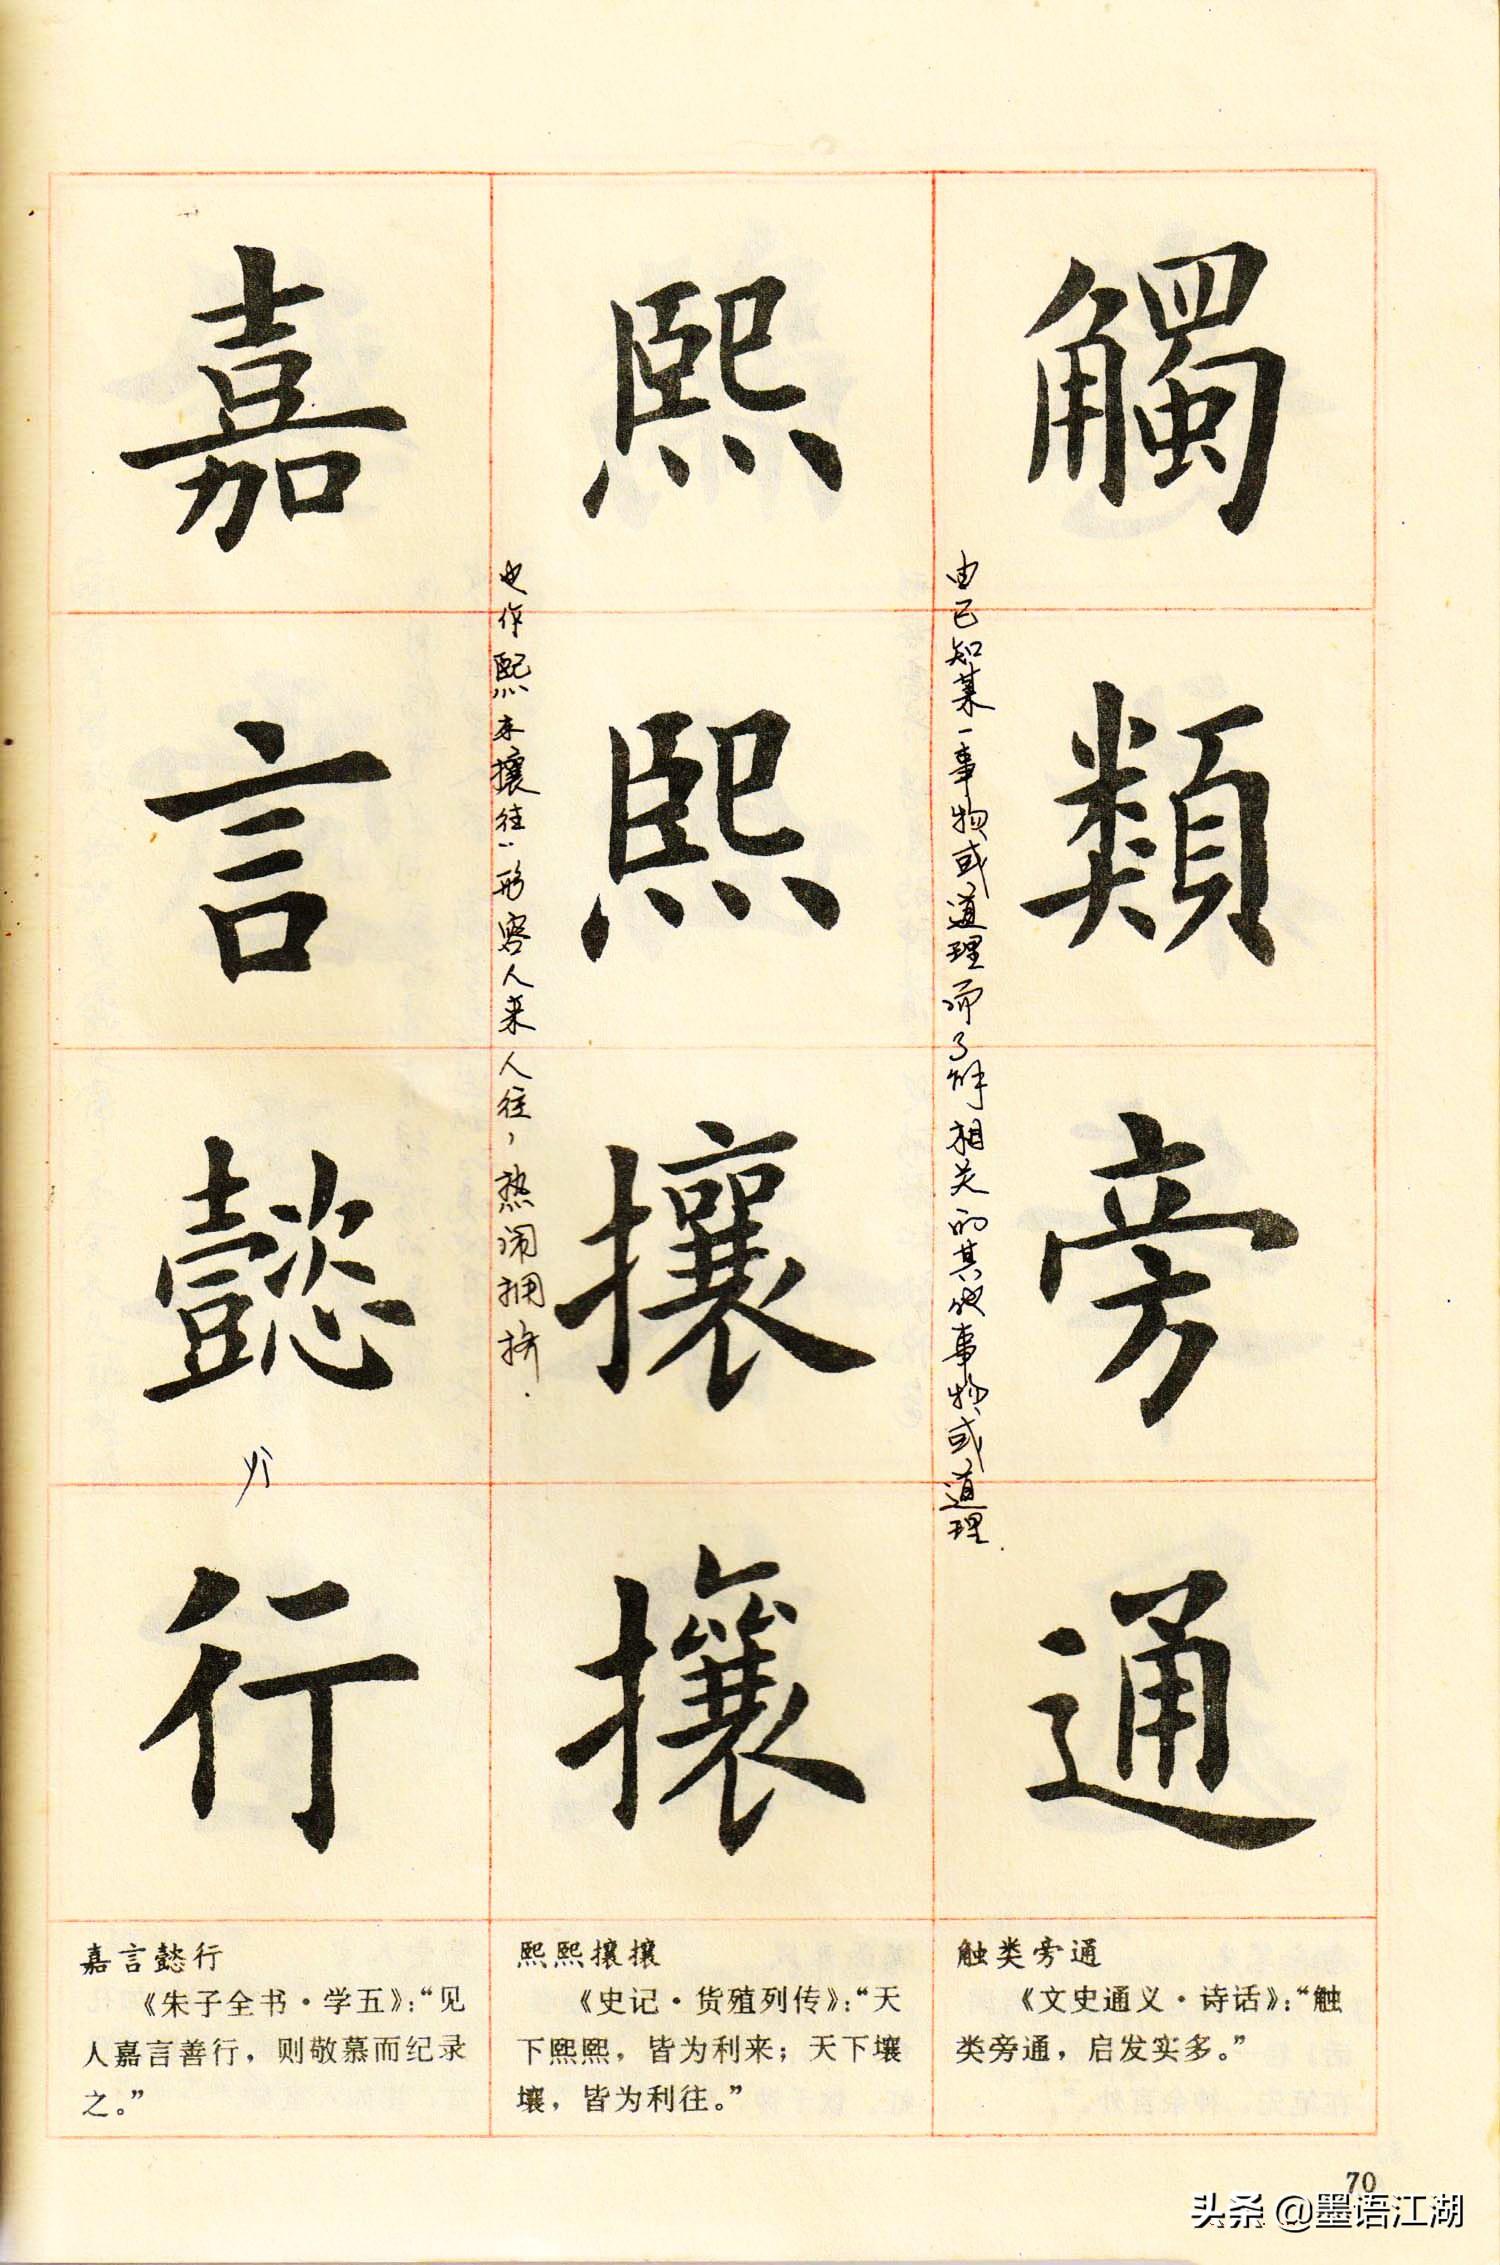 觸類旁通
由已知某一事物或道理而了解相关的其他事物或道理.
熙熙攘攘
也作熙来攘往。形容人来人往，热闹拥挤.
嘉言懿行
触类旁通
《文史通义·诗话》：“触
类旁通，启发实多。”
熙熙攘攘
《史记·货殖列传》：“天
下熙熙，皆为利来；天下壤
壤，皆为利往。”
嘉言懿行
《朱子全书·学五》：“见
人嘉言善行，则敬慕而纪录
之。”
70
头条 @墨语江湖